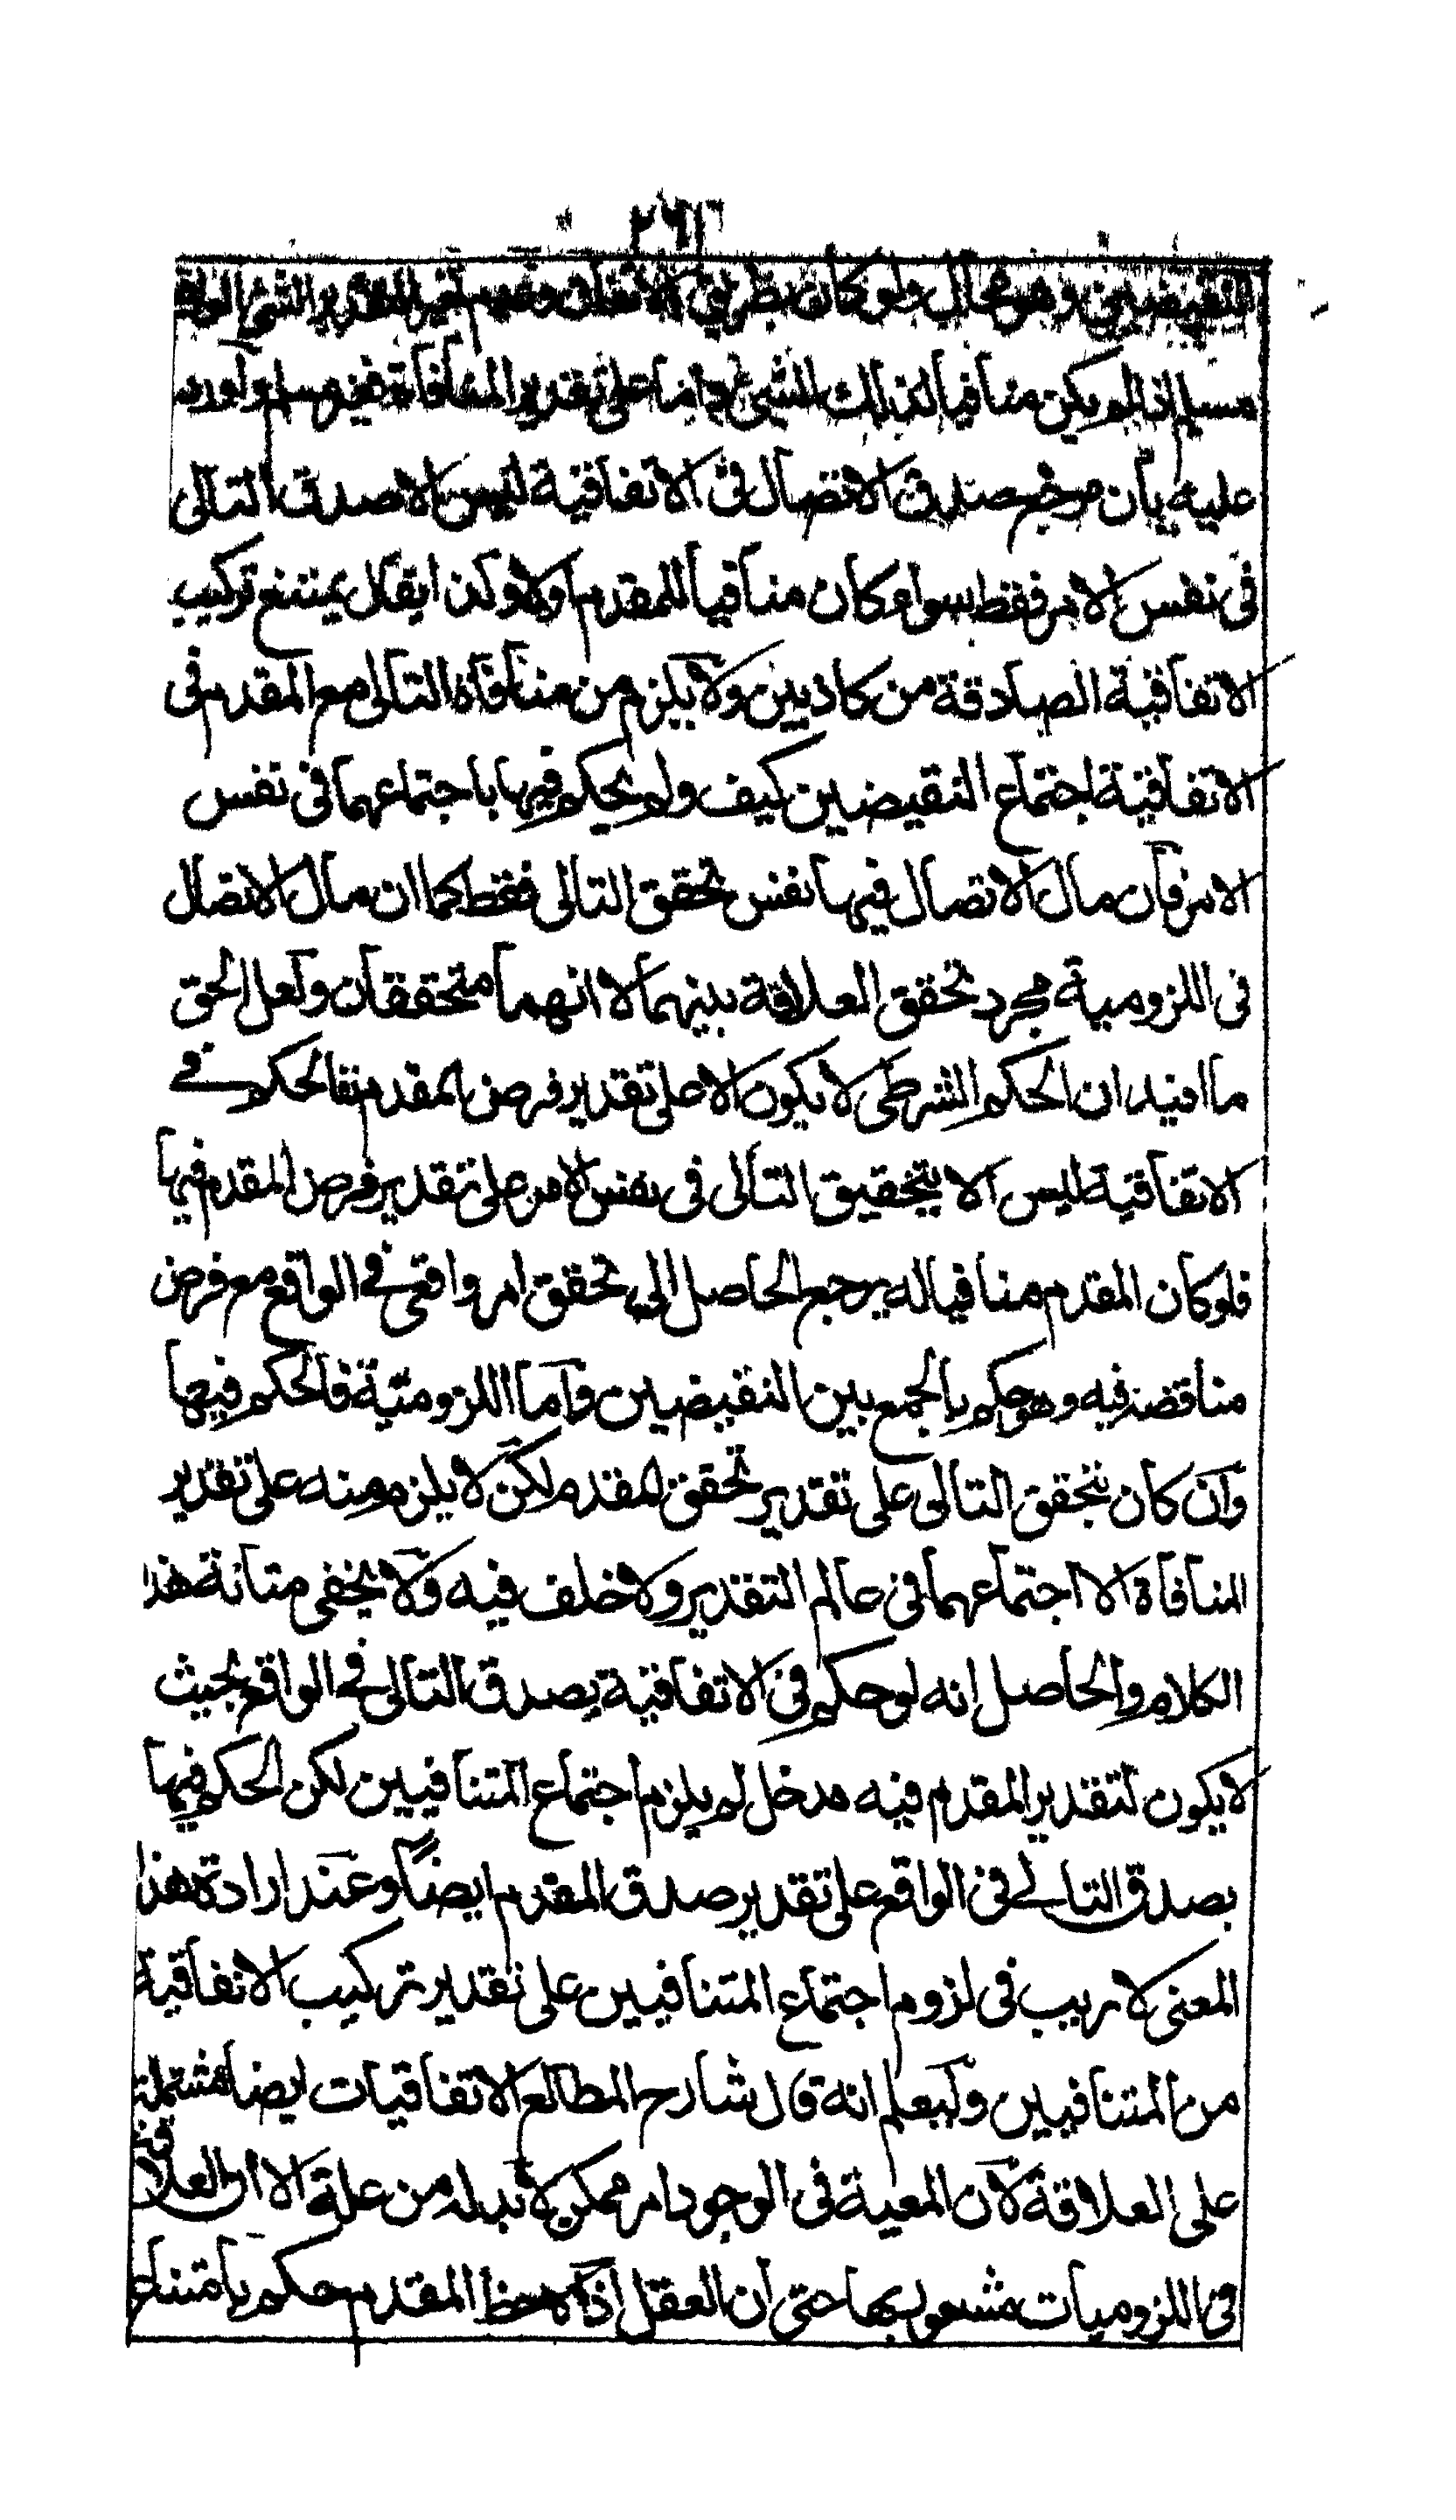 ٢٦١
النقيضين وهو محال ولو كان بطريق الاتفاق وتغير التقدير الشئ الواقع
مسلم اذا لم يكن منافيا لذلك الشئ واما على تقدير المنافاة فغير مسلم واورد
عليه بان مرجع صدق الاتصال فى الاتفاقية ليس الا صدق التالى
فى نفس الامر فقط سواء كان منافيا للمقدم اولا ولذا يقال يمتنع تركيب
الاتفاقية الصادقة من كاذبين ولا يلزم من منافاة التالى مع المقدم فى
الاتفاقية اجتماع النقيضين كيف ولم يحكم فيها باجتماعهما فى نفس
الامر فان مال الاتصال فيها نفس تحقق التالى فقط كما ان مال الاتصال
فى اللزومية مجرد تحقق العلاقة بينهما لا انهما متحققان ولعل الحق
ما افيد ان الحكم الشرطى لا يكون الا على تقدير فرض المقدم فالحكم فے
الاتفاقية ليس الا بتحقيق التالى فى نفس الامر على تقدير فرض المقدم فيها
فلو كان المقدم منافيا له يرجع الحاصل الى تحقق امر واقعى فے الواقع مع فرض
مناقضه فيه وهو حكم بالجمع بين النقيضين واما اللزومية فالحكم فيها
وان كان بتحقق التالى على تقدير تحقق المقدم لكن لا يلزم منه على تقدير
المنافاة الا اجتماعهما فى عالم التقدير ولا خلف فيه ولا يخفى متانة هذا
الكلام والحاصل انه لو حكم فى الاتفاقية بصدق التالى فے الواقع بحيث
لا يكون لتقدير المقدم فيه مدخل لم يلزم اجتماع المتنافيين لكن الحكم فيها
بصدق التالے فى الواقع على تقدير صدق المقدم ايضاً وعند ارادة هذا
المعنى لا ريب فى لزوم اجتماع المتنافيين على تقدير تركيب الاتفاقية
من المتنافيين وليعلم انه قال شارح المطالع الاتفاقيات ايضا مشتملة
على العلاقة لان المعية فى الوجود امر ممكن لا بد له من علة الا ان العلاقة
فى اللزوميات مشعور بها حتى ان العقل اذا لاحظ المقدم حكم بامتناع